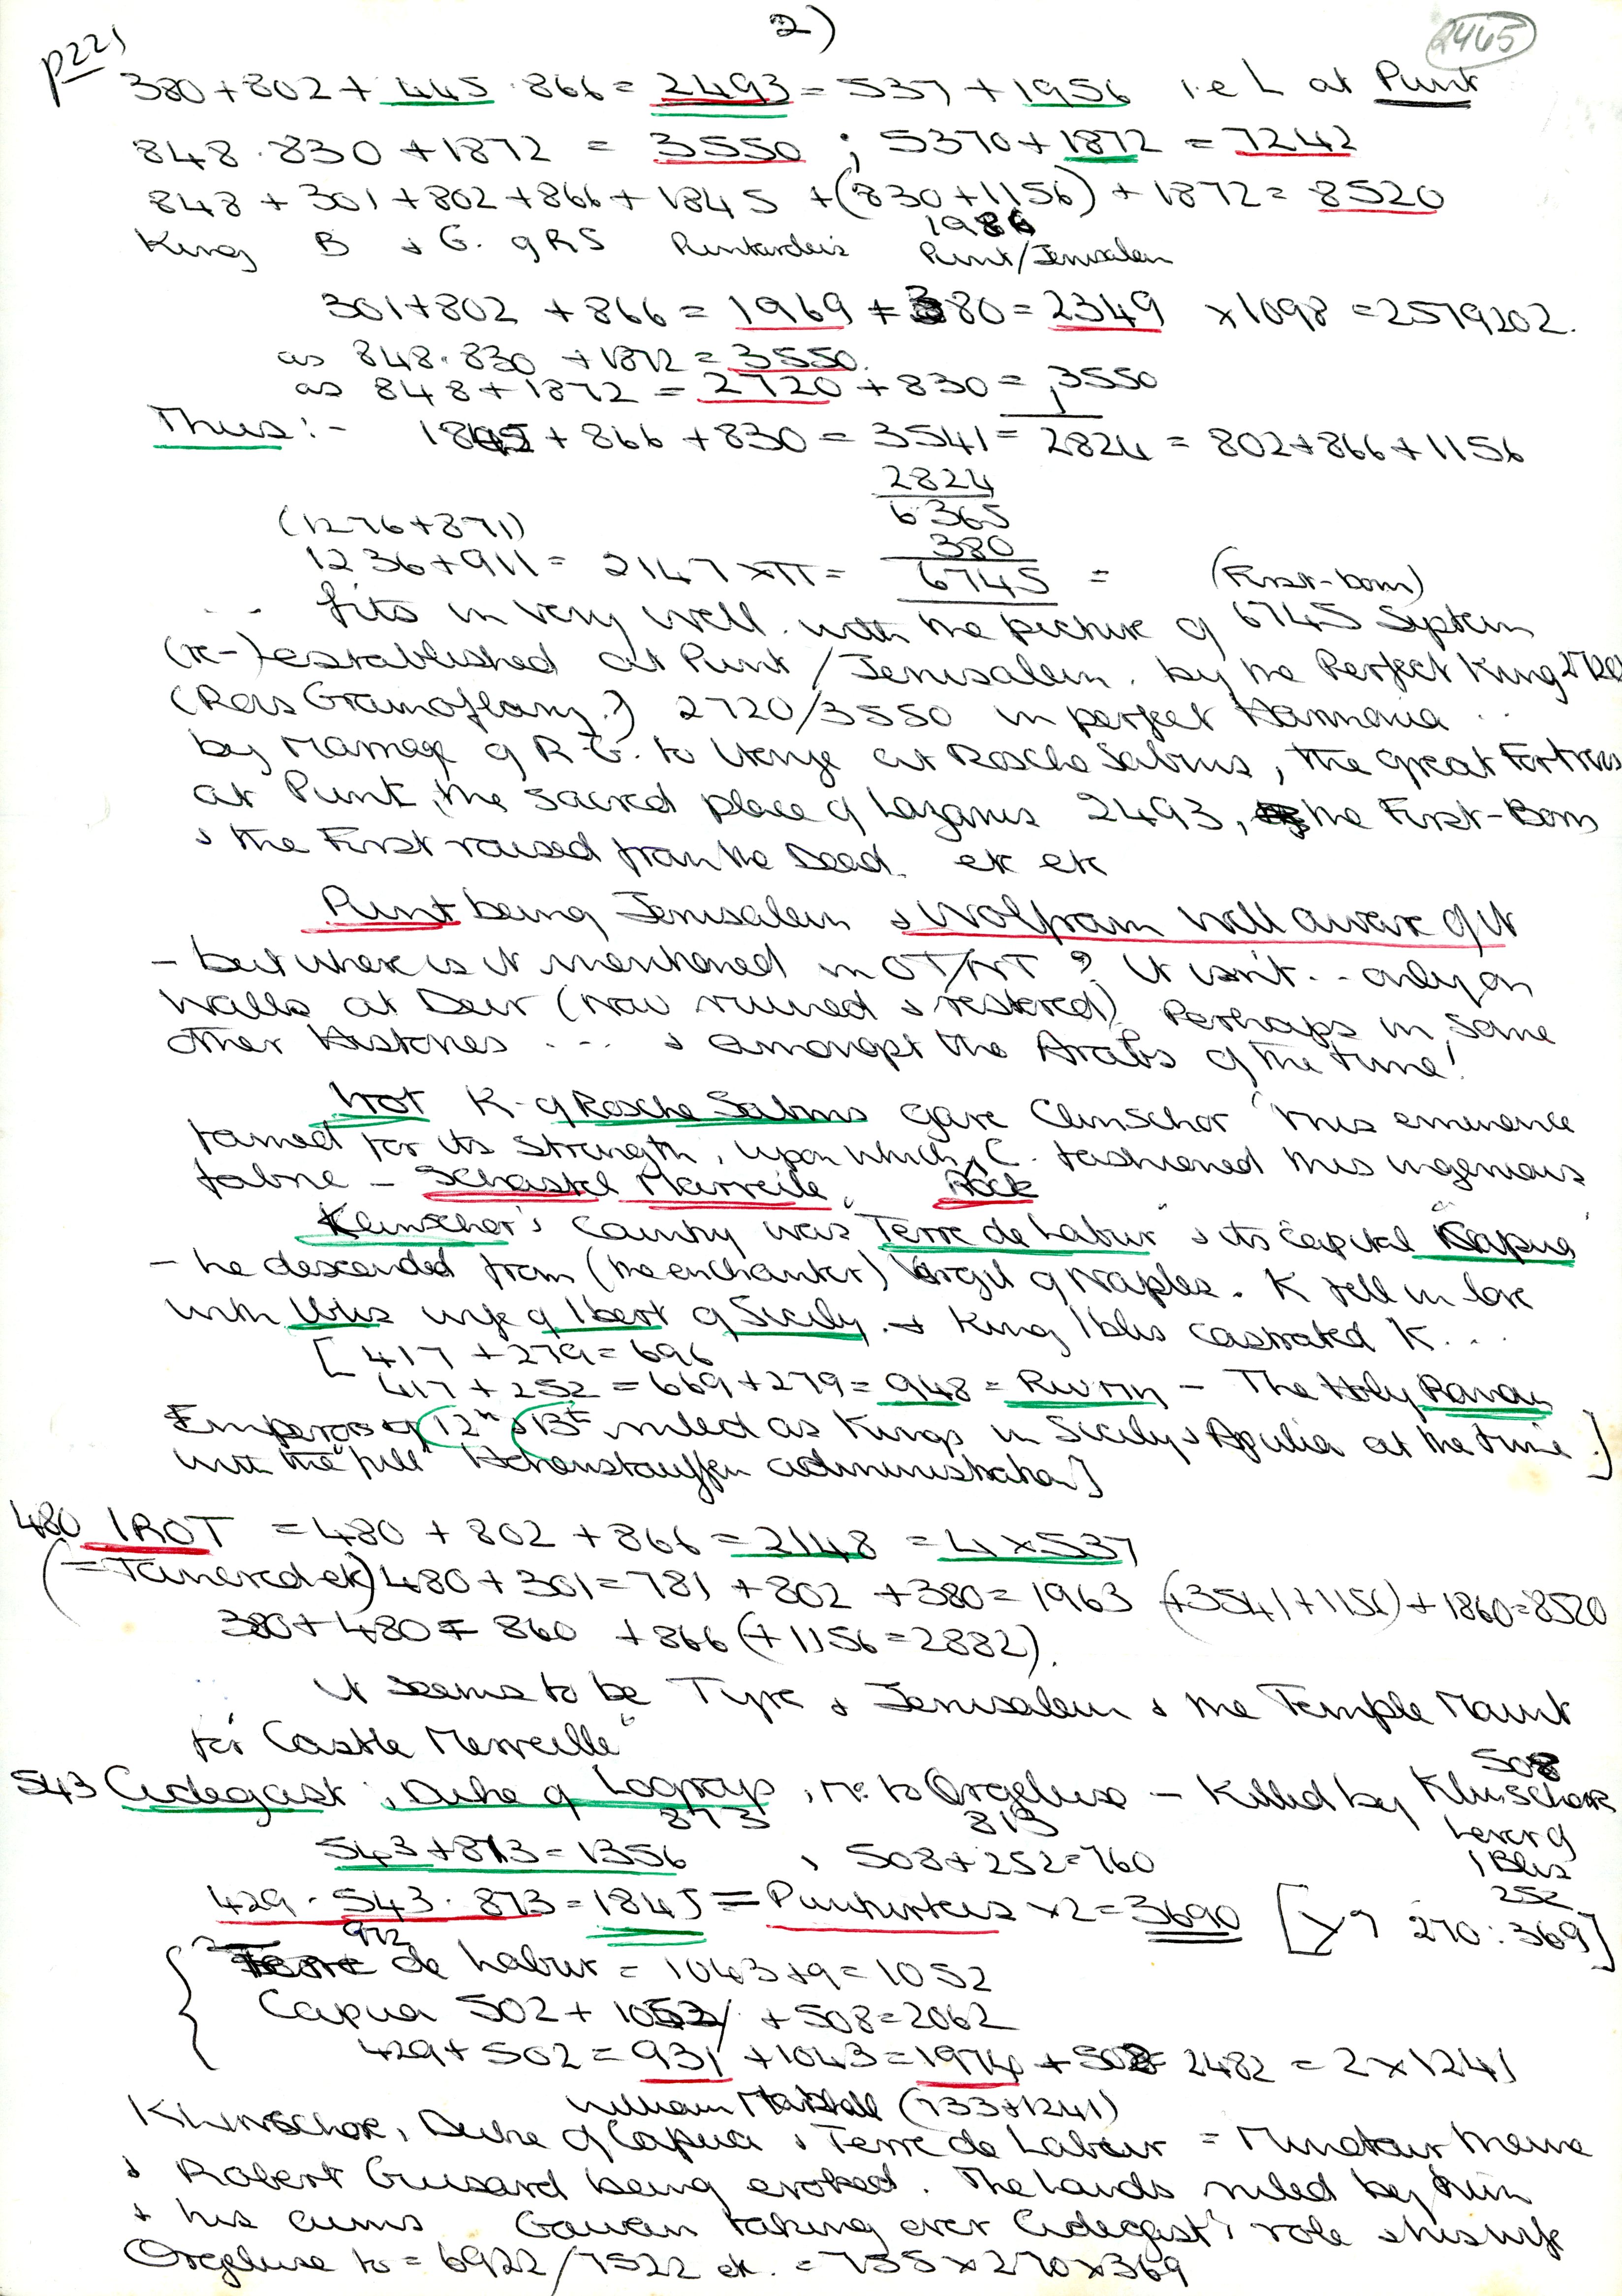 2)
2465
p221
380+802+445·866=2493=537+1956 i.e L at Punt
848·830+1872 = 3550 ; 5370+1872 = 7242
848+301+802+866+1845+(830+1156)+1872=8520
1986
King B & G. of RS Punturteis Punt/Jerusalem
301+802+866=1969+380=2349 ×1098=2579202.
as 848·830+1872=3550
as 848+1872=2720+830=3550
Thus:- 1845+866+830=3541=2824=802+866+1156
2824
6365
(1276+871)
380
1236+911=2147×π= 6745 = (First-born)
.. fits in very well. with the picture of 6745 System
(re-)established at Punt/Jerusalem. by the Perfect King 2720
(Rois Gramoflanz?) 2720/3550 in perfect Harmonia ..
by Marriage of R.G. to Itonje at Rosche Sabins, the great Fortress
at Punt, the sacred place of Lazarus 2493, the First-Born
& the First raised from the Dead. etc etc
Punt being Jerusalem & Wolfram well aware of it
- but where is it mentioned in OT/NT? It isn't... only on
walls at Deir (now ruined & restored) Perhaps in some
other Histories ... & amongst the Arabs of the time!
Irot K. of Rosche Sabins gave Clinschor "this eminence
famed for its strength, upon which C. fashioned this ingenious
fabric - Schastel Marveile" Rock
Klinschor's Country was "Terre de Labur" & its capital "Kapua"
- he descended from (the enchanter) Virgil of Naples. K fell in love
with Iblis wife of Ibert of Sicily. & King Iblis castrated K...
[417+279=696
417+252=669+279=948= - The Holy Roman
Emperors of 12th & 13th ruled as Kings in Sicily & Apulia at the time.]
with the "full" Hohenstauffen administration]
480 IROT = 480+802+866=2148=4×537
(=Tancred etc) 480+301=781+802+380=1963 (+3541+1156)+1860=8520
380+480=860+866(+1156=2882).
It seems to be Tyre & Jerusalem & the Temple Mount
for "Castle Merveille"
508
543 Cidegast, Duke of Logroys, m. to Orgeluse - Killed by Klinschore
873 813 Lover of
543+813=1356 , 508+252=760 Iblis
252
429·543·873=1845=Punturteis ×2=3690 [×? 270:369]
972
Terre de Labur=1043+9=1052
Capua 502+1052/+508=2062
429+502=931+1043=1974+508=2482=2×1241
William Marshall (733+1241)
Klinschor, Duke of Capua & Terre de Labur = Minotaur theme
& Robert Guisard being evoked. The Lands ruled by him
& his cums Gawan taking over Cidegast's role & his wife
Orgeluse to = 6922/7522 etc. =755×270×369